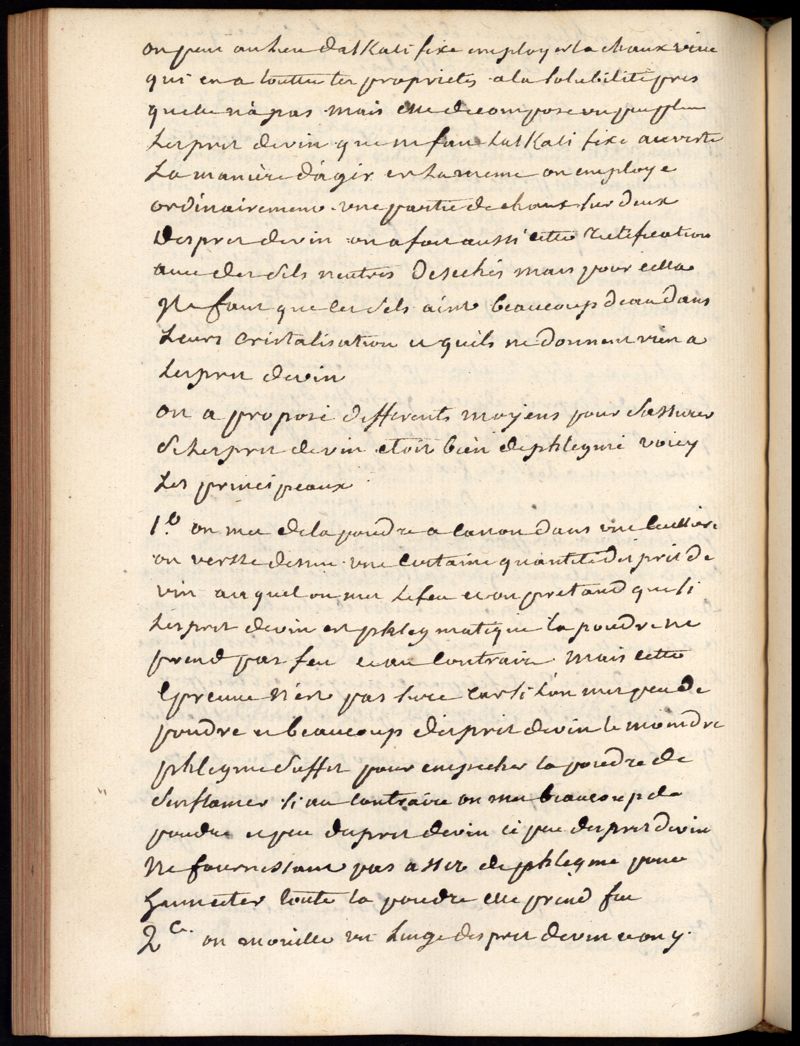 on peut au lieu d'alkali fixe employer la chaux vive
qui en a touttes les proprietés a la solubilité pres
quelle n'a pas mais elle decompose un peu plus
Lesprit de vin que ne fait Lalkali fixe au reste
La maniere d'agir est la meme on employe
ordinairement une partie de chaux sur deux
Desprit de vin on a fait aussi cette rectification
avec des sels neutres Desechés mais pour cella
Il faut que les sels aient beaucoup deau dans
Leurs cristalisation et quils ne donnent rien a
Lesprit de vin
on a proposé differents moyens pour s'assurer
si Lesprit de vin etoit bien dephlegmé voicy
Les principeaux
1.o on met de la poudre a canon dans une cuilliere
on versse dessus une certaine quantité desprit de
vin auquel on met le feu et on pretand que si
Lesprit de vin est phlegmatique la poudre ne
prend pas feu et au contraire mais cette
Epreuve n'est pas sure car si L'on met peu de
poudre et beaucoup d'esprit de vin le moindre
phlegme suffit pour empecher la poudre de
s'enflamer si au contraire on met beaucoup de
poudre et peu desprit de vin ce peu desprit de vin
Ne fournissant pas assez de phlegme pour
humecter toute la poudre elle prend feu
2.e on mouille un Linge desprit de vin et on y